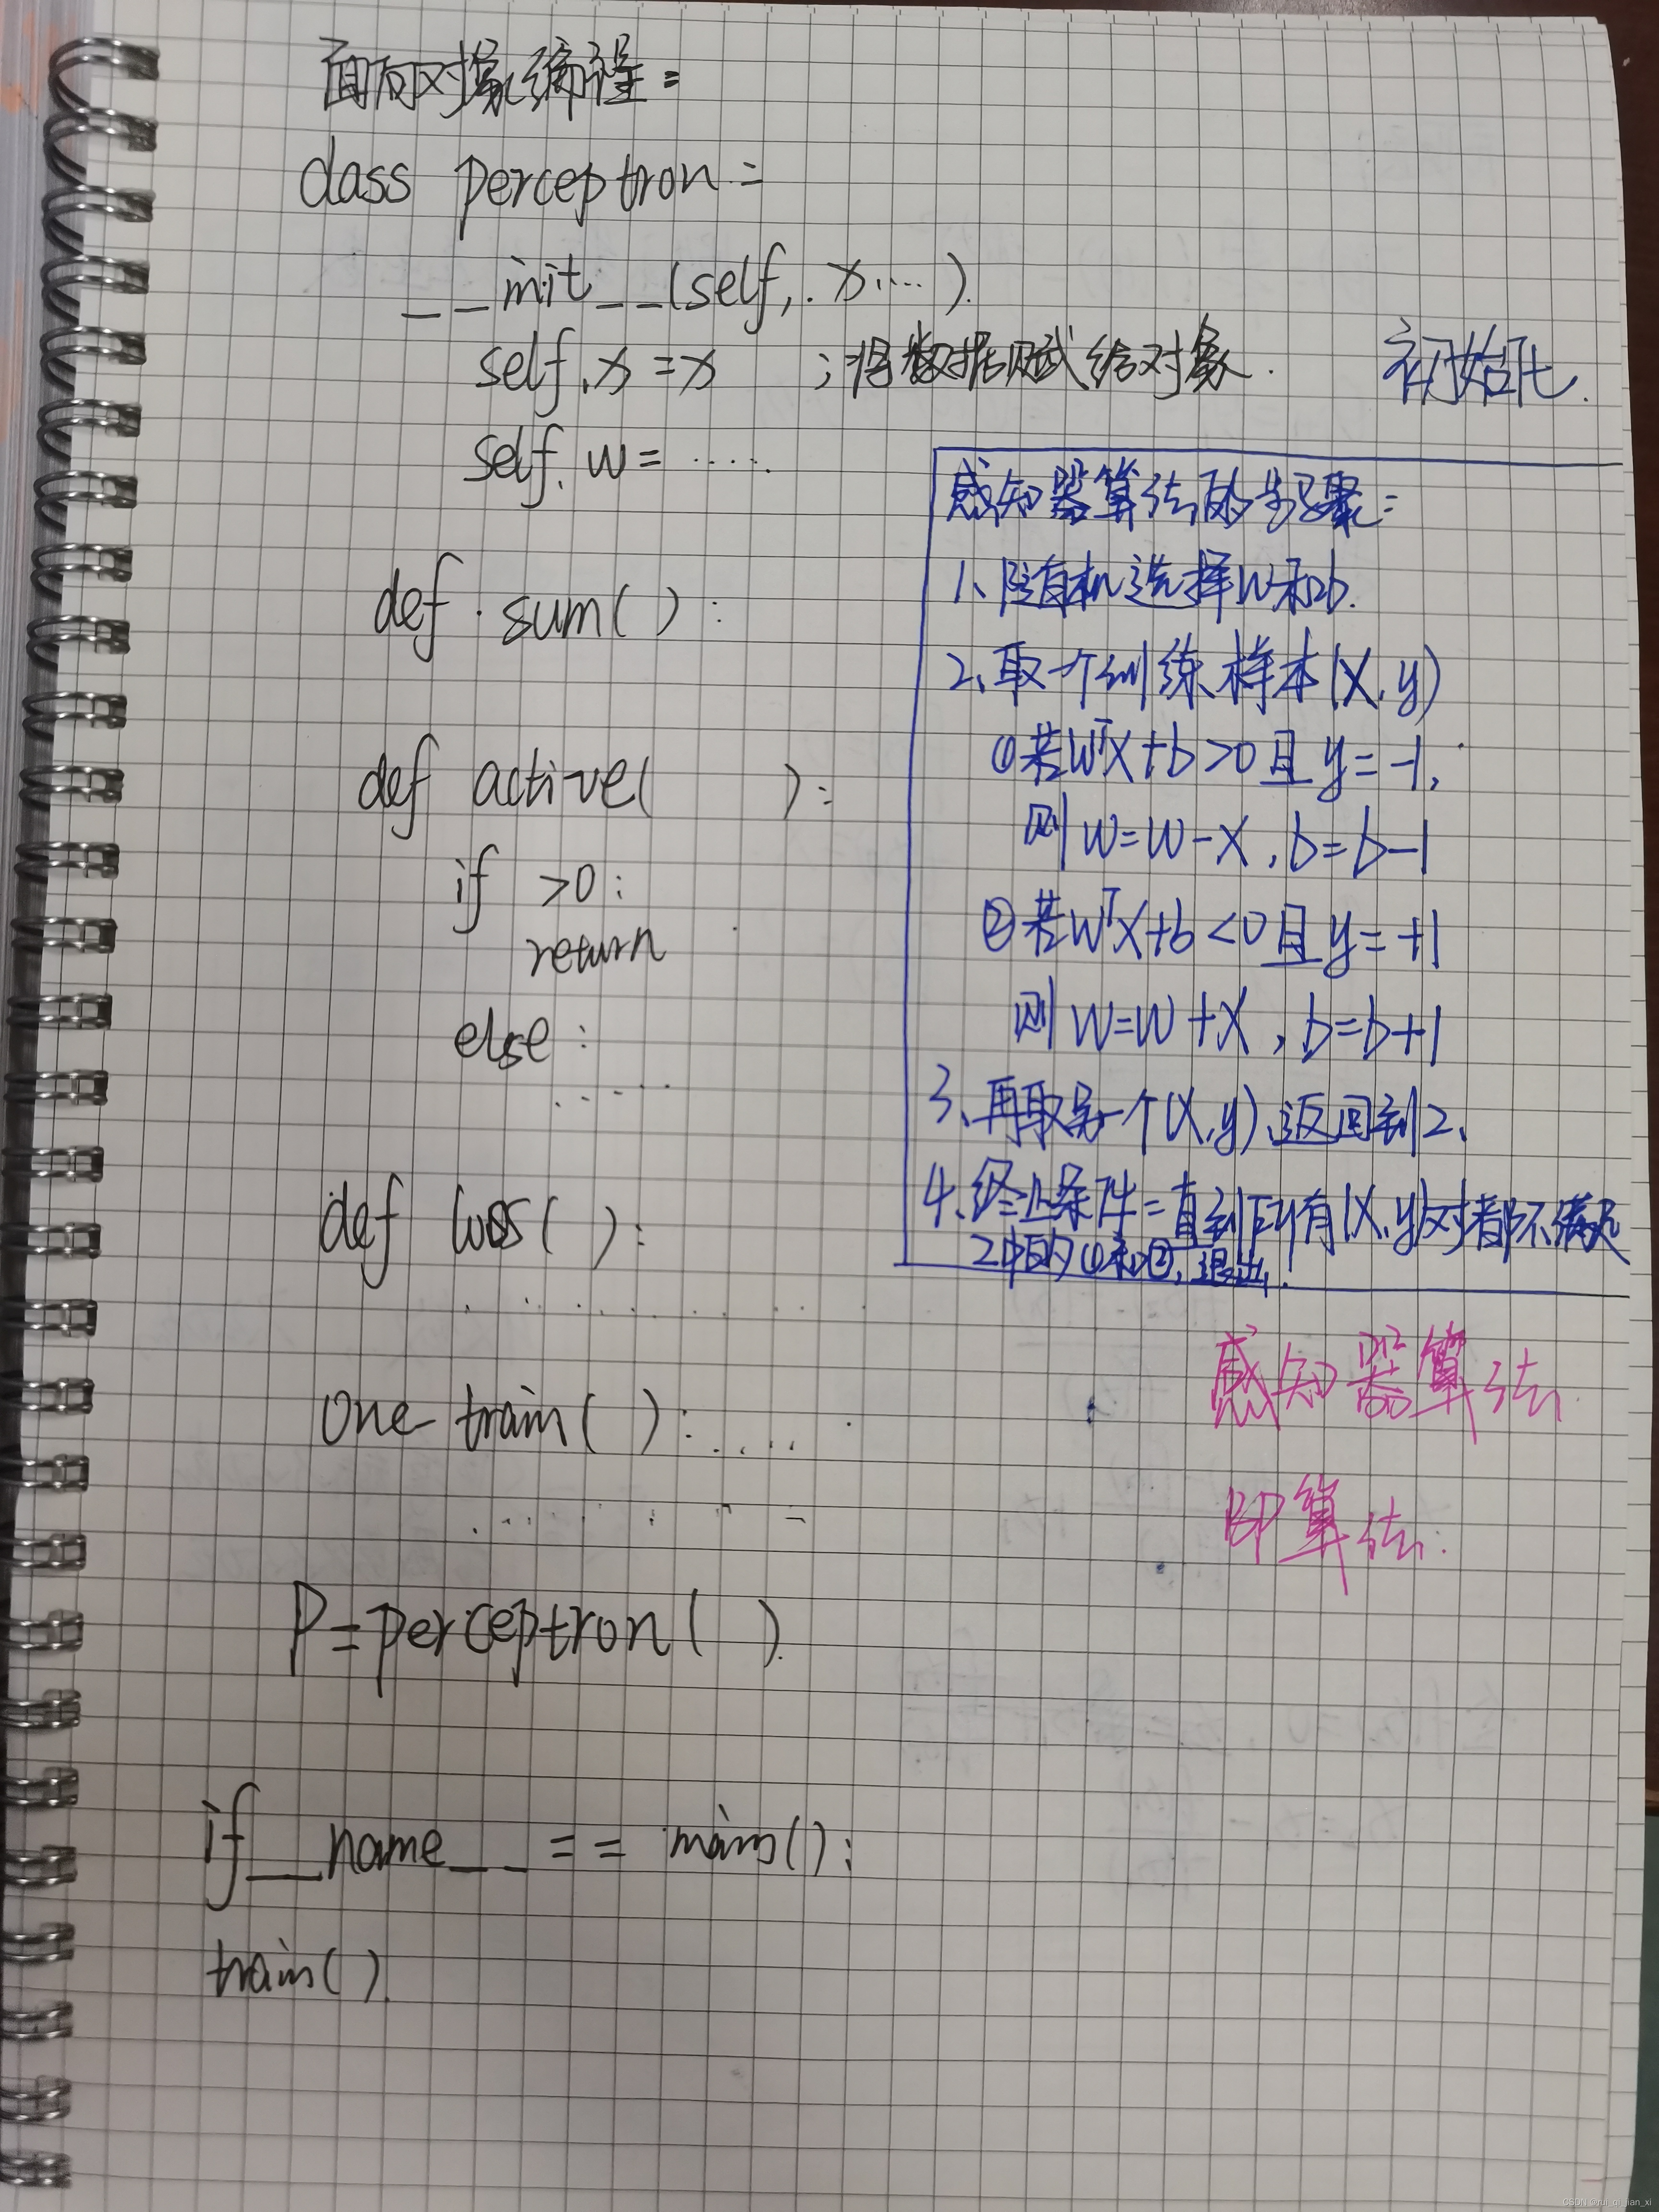 面向对象编程:
class perceptron:
__init__(self, x....).
self.x = x ;将数据赋给对象. 初始化.
self.w = .....
def sum( ):
def active( ):
if >0:
return
else:
.....
def loss( ):
..........
one train( ): ....
P=perceptron( ).
if __name__ == main():
train().
感知器算法的步骤:
1、随机选择W和b.
2、取一个训练样本(X,y)
①若WᵀX+b>0且y=-1,
则W=W-X,b=b-1
②若WᵀX+b<0且y=+1
则W=W+X,b=b+1
3、再取另一个(X,y),返回到2、
4、终止条件:直到所有(X,y)对都不满足
2中的①和②,退出!
感知器算法
BP算法.
CSDN @rui_qi_jian_xi